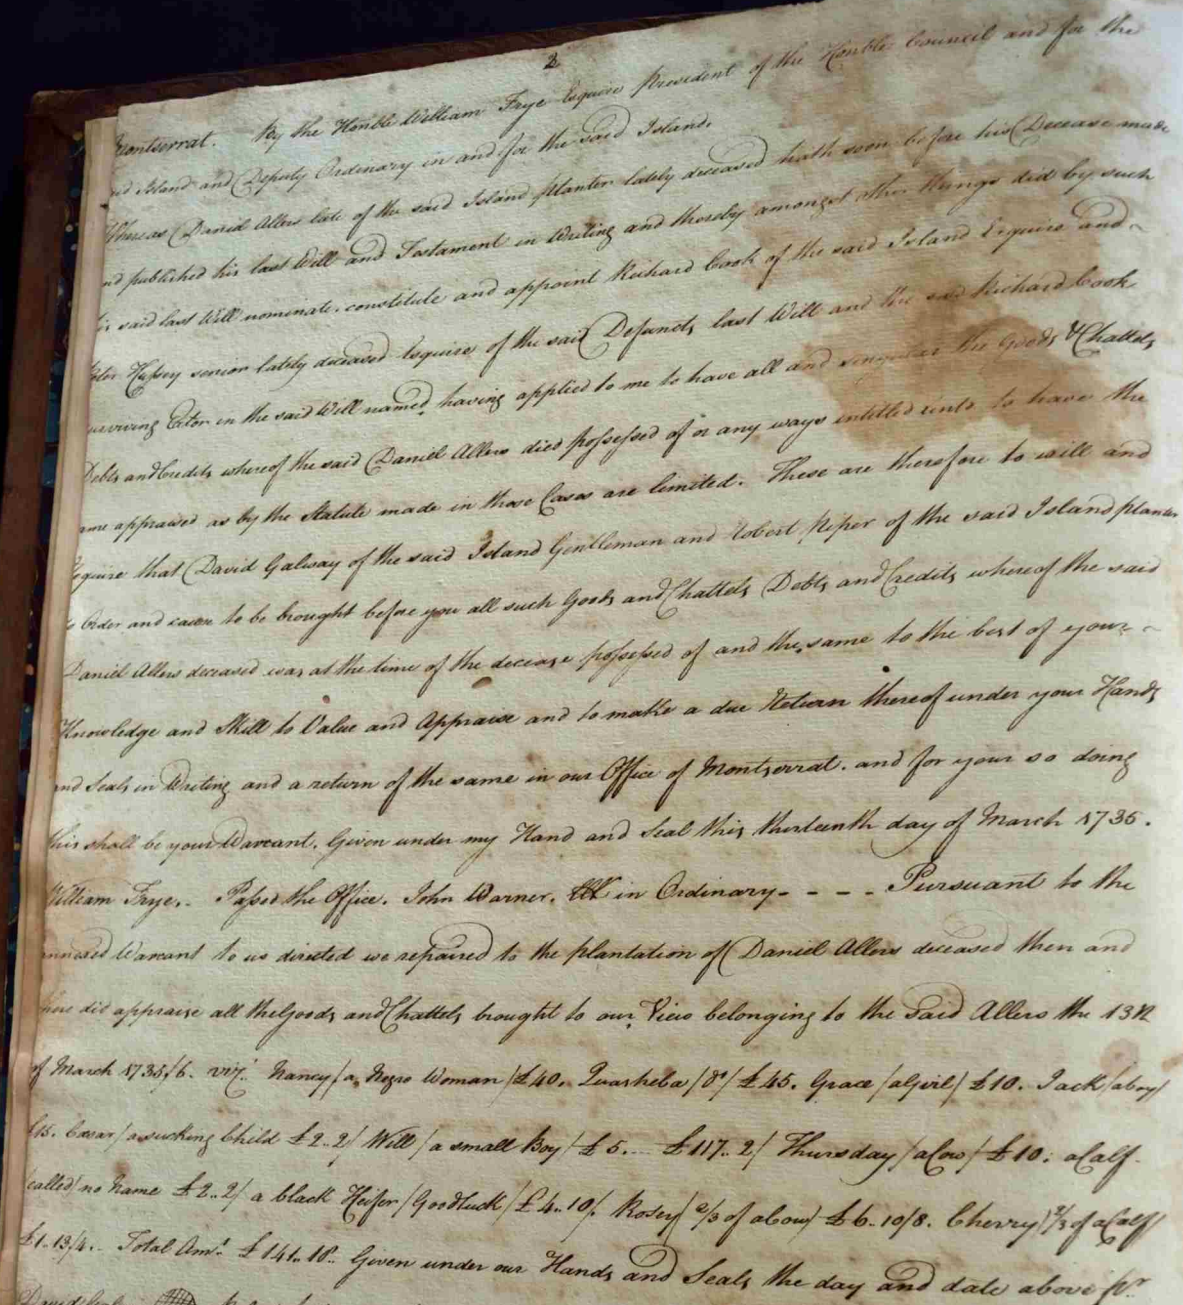 2
Montserrat. By the Honble William Frye Esquire President of the Honble Council and for the
said Island and Deputy Ordinary in and for the said Island.
Whereas Daniel Allers late of the said Island planter lately deceased hath soon before his Decease made
and published his last Will and Testament in Writing and thereby amongst other things did by such
his said last Will nominate, constitute and appoint Richard Cook of the said Island Esquire and
Peter Hussey senior lately deceased Esquire of the said Defuncts last Will and the said Richard Cook
surviving Extor in the said Will named, having applied to me to have all and singular the Goods & Chattels
Debts and Credits whereof the said Daniel Allers died possessed of or any ways intitled unto to have the
same appraised as by the Statute made in those Cases are limited. These are therefore to will and
require that David Galway of the said Island Gentleman and Robert Piper of the said Island planter
to Order and cause to be brought before you all such Goods and Chattels Debts and Credits whereof the said
Daniel Allers deceased was at the time of the decease possessed of and the same to the best of your
Knowledge and Skill to Value and Appraise and to make a due Return thereof under your Hands
and Seals in Writing and a return of the same in our Office of Montserrat. and for your so doing
this shall be your Warrant. Given under my Hand and Seal this thirteenth day of March 1735.
William Frye. Passed the Office. John Warner. in Ordinary - - - - Pursuant to the
annexed Warrant to us directed we repaired to the plantation of Daniel Allers deceased then and
there did appraise all the Goods and Chattels brought to our View belonging to the Said Allers the 13th
of March 1735/6. vizt. Nancy /a Negro Woman/ £40. Quasheba /do/ £45. Grace /a Girl/ £10. Jack /a boy/
£15. Cæsar /a sucking Child £2..2/ Will /a small Boy/ £5. - £117..2/ Thursday /a Cow/ £10: a Calf
called/ no Name £2..2/ a black Heifer /Goodluck/ £4..10/. Rosey/ 2/3 of a Cow/ £6..10/8. Cherry/ 2/3 of a Calf/
£1..13/4. Total Amt. £141..18.. Given under our Hands and Seals the day and date above pr.
David